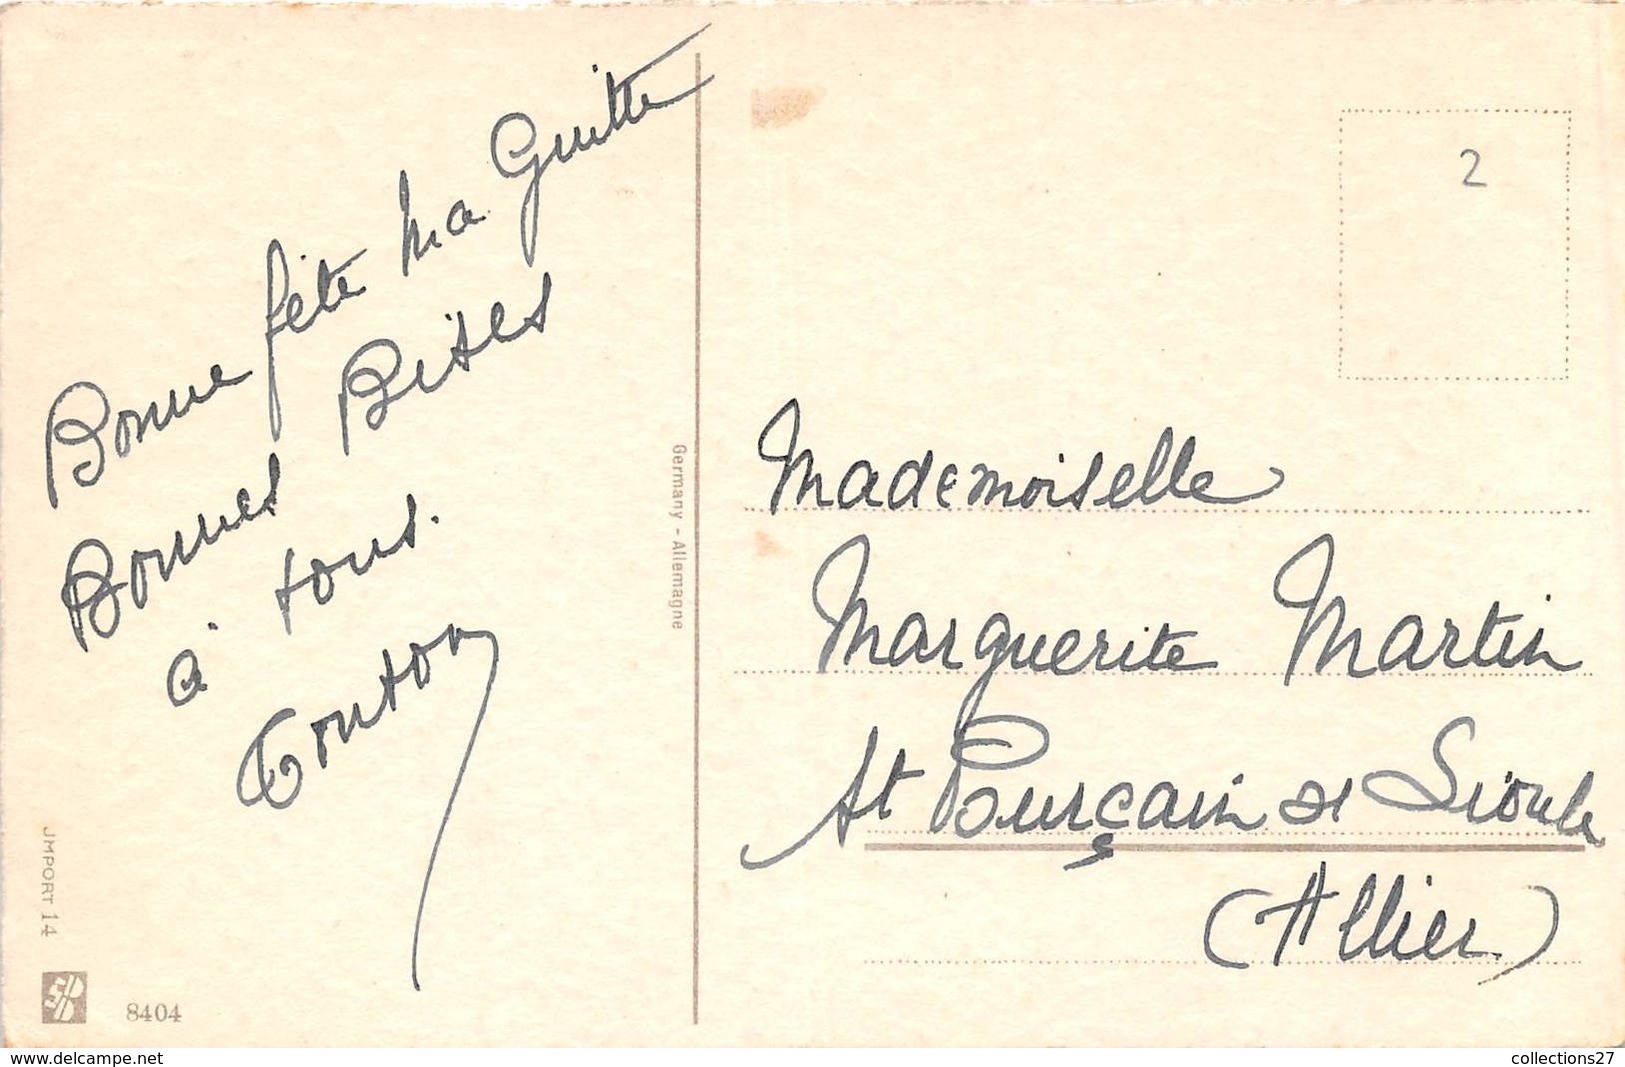 Bonne fête ma Guitte
Bonnes Bises
à tous.
Tonton
Germany - Allemagne
JMPORT 14
8404
2
Mademoiselle
Marguerite Martin
St Purçain si Sioule
(Allier)
www.delcampe.net
collections27